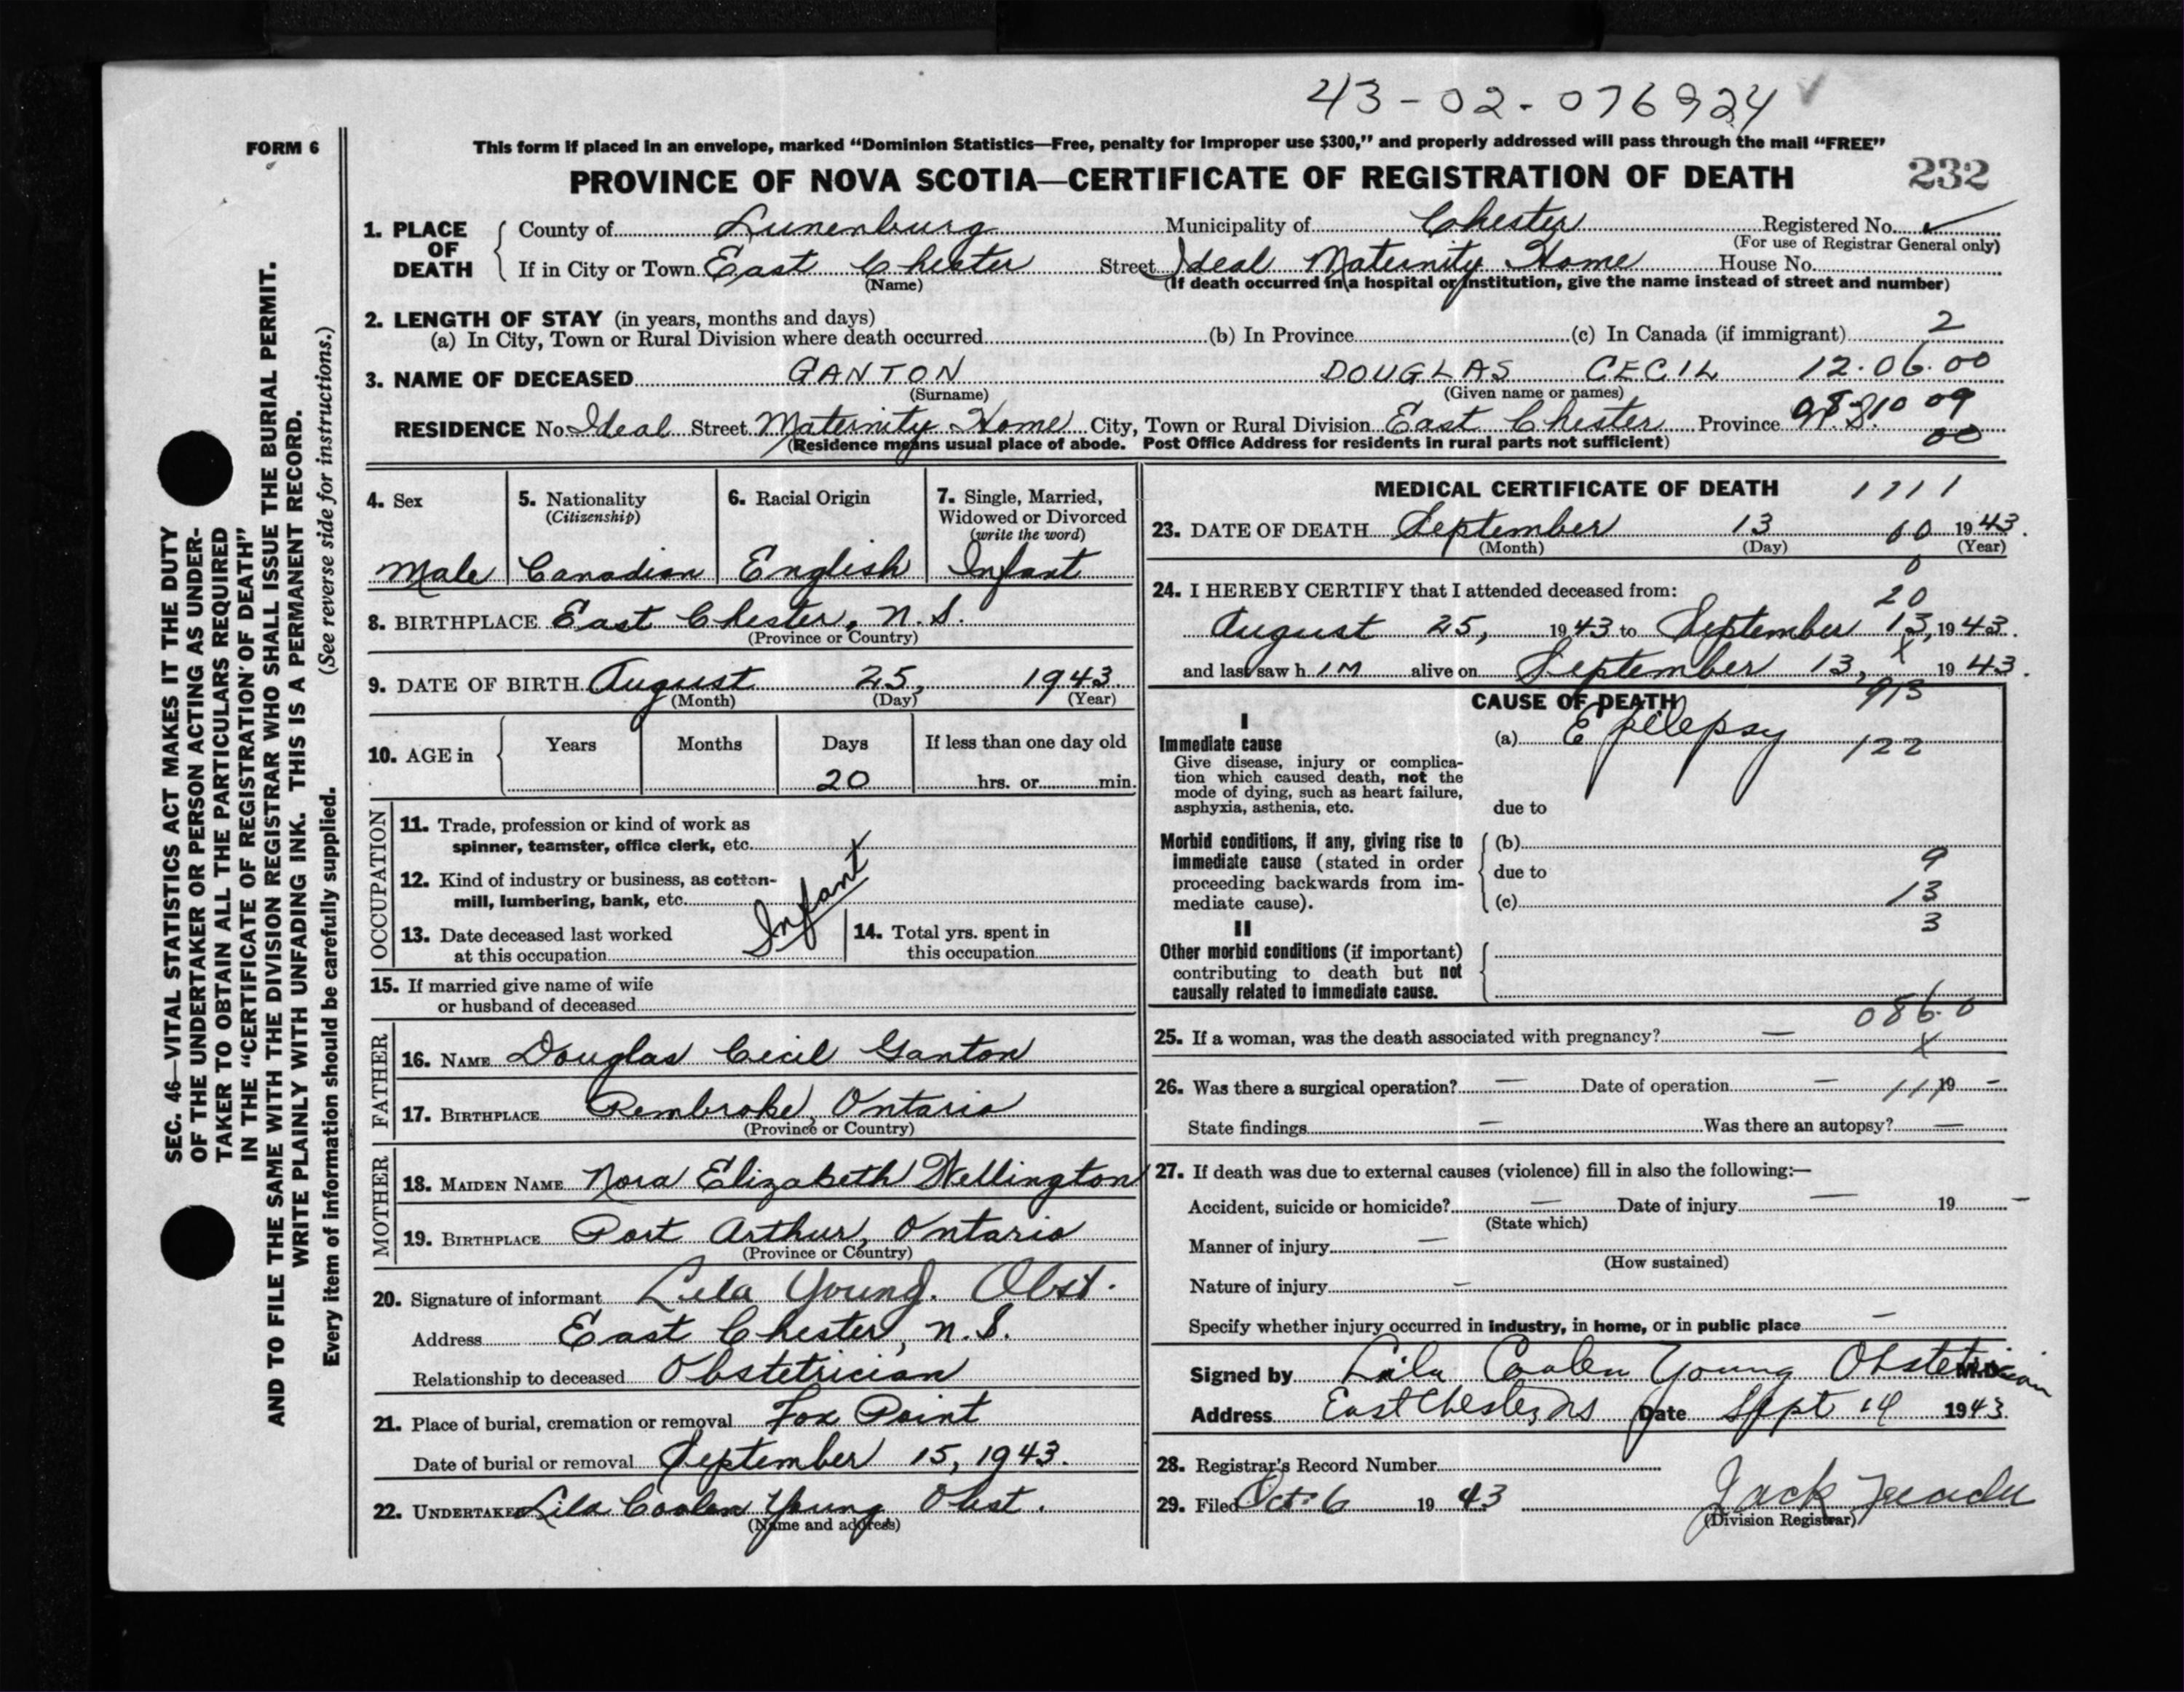 43-02-076924
FORM 6
This form if placed in an envelope, marked “Dominion Statistics—Free, penalty for improper use $300,” and properly addressed will pass through the mail “FREE”
PROVINCE OF NOVA SCOTIA—CERTIFICATE OF REGISTRATION OF DEATH 232
1. PLACE OF DEATH
County of Lunenburg Municipality of Chester Registered No. ✓
(For use of Registrar General only)
If in City or Town East Chester Street Ideal Maternity Home House No.
(Name) (If death occurred in a hospital or institution, give the name instead of street and number)
2. LENGTH OF STAY (in years, months and days)
(a) In City, Town or Rural Division where death occurred (b) In Province (c) In Canada (if immigrant) 2
3. NAME OF DECEASED GANTON DOUGLAS CECIL 12.06.00
(Surname) (Given name or names)
RESIDENCE No. Ideal Street Maternity Home City, Town or Rural Division East Chester Province N.S. 10 09
00
(Residence means usual place of abode. Post Office Address for residents in rural parts not sufficient)
4. Sex
Male
5. Nationality
(Citizenship)
Canadian
6. Racial Origin
English
7. Single, Married,
Widowed or Divorced
(write the word)
Infant
8. BIRTHPLACE East Chester, N.S.
(Province or Country)
9. DATE OF BIRTH August 25, 1943
(Month) (Day) (Year)
10. AGE in Years Months Days If less than one day old
20 hrs. or min.
OCCUPATION
11. Trade, profession or kind of work as
spinner, teamster, office clerk, etc.
12. Kind of industry or business, as cotton-
mill, lumbering, bank, etc.
Infant
13. Date deceased last worked
at this occupation
14. Total yrs. spent in
this occupation
15. If married give name of wife
or husband of deceased
FATHER
16. NAME Douglas Cecil Ganton
17. BIRTHPLACE Pembroke, Ontario
(Province or Country)
MOTHER
18. MAIDEN NAME Nora Elizabeth Wellington
19. BIRTHPLACE Port Arthur, Ontario
(Province or Country)
20. Signature of informant Lila Young. Obst.
Address East Chester, N.S.
Relationship to deceased Obstetrician
21. Place of burial, cremation or removal Fox Point
Date of burial or removal September 15, 1943.
22. UNDERTAKER Lila Coolen Young Obst.
(Name and address)
MEDICAL CERTIFICATE OF DEATH 1111
23. DATE OF DEATH September 13 00 1943.
(Month) (Day) (Year)
0
24. I HEREBY CERTIFY that I attended deceased from:
20
August 25, 1943 to September 13, 1943.
X
and last saw him alive on September 13, 1943.
913
CAUSE OF DEATH
I
Immediate cause
Give disease, injury or complica-
tion which caused death, not the
mode of dying, such as heart failure,
asphyxia, asthenia, etc.
(a) Epilepsy 122
due to
Morbid conditions, if any, giving rise to
immediate cause (stated in order
proceeding backwards from im-
mediate cause).
(b)
9
due to
(c) 13
3
II
Other morbid conditions (if important)
contributing to death but not
causally related to immediate cause.
086.0
25. If a woman, was the death associated with pregnancy? —
X
26. Was there a surgical operation? — Date of operation — 111 19 —
State findings — Was there an autopsy? —
27. If death was due to external causes (violence) fill in also the following:—
Accident, suicide or homicide? — Date of injury — 19 —
(State which)
Manner of injury —
(How sustained)
Nature of injury —
Specify whether injury occurred in industry, in home, or in public place —
Signed by Lila Coolen Young Obstetrician M.D.
Address East Chester, NS Date Sept 14 1943.
28. Registrar's Record Number
29. Filed Oct 6 1943 Jack
(Division Registrar)
SEC. 46—VITAL STATISTICS ACT MAKES IT THE DUTY
OF THE UNDERTAKER OR PERSON ACTING AS UNDER-
TAKER TO OBTAIN ALL THE PARTICULARS REQUIRED
IN THE “CERTIFICATE OF REGISTRATION OF DEATH”
AND TO FILE THE SAME WITH THE DIVISION REGISTRAR WHO SHALL ISSUE THE BURIAL PERMIT.
WRITE PLAINLY WITH UNFADING INK. THIS IS A PERMANENT RECORD.
Every item of information should be carefully supplied. (See reverse side for instructions.)